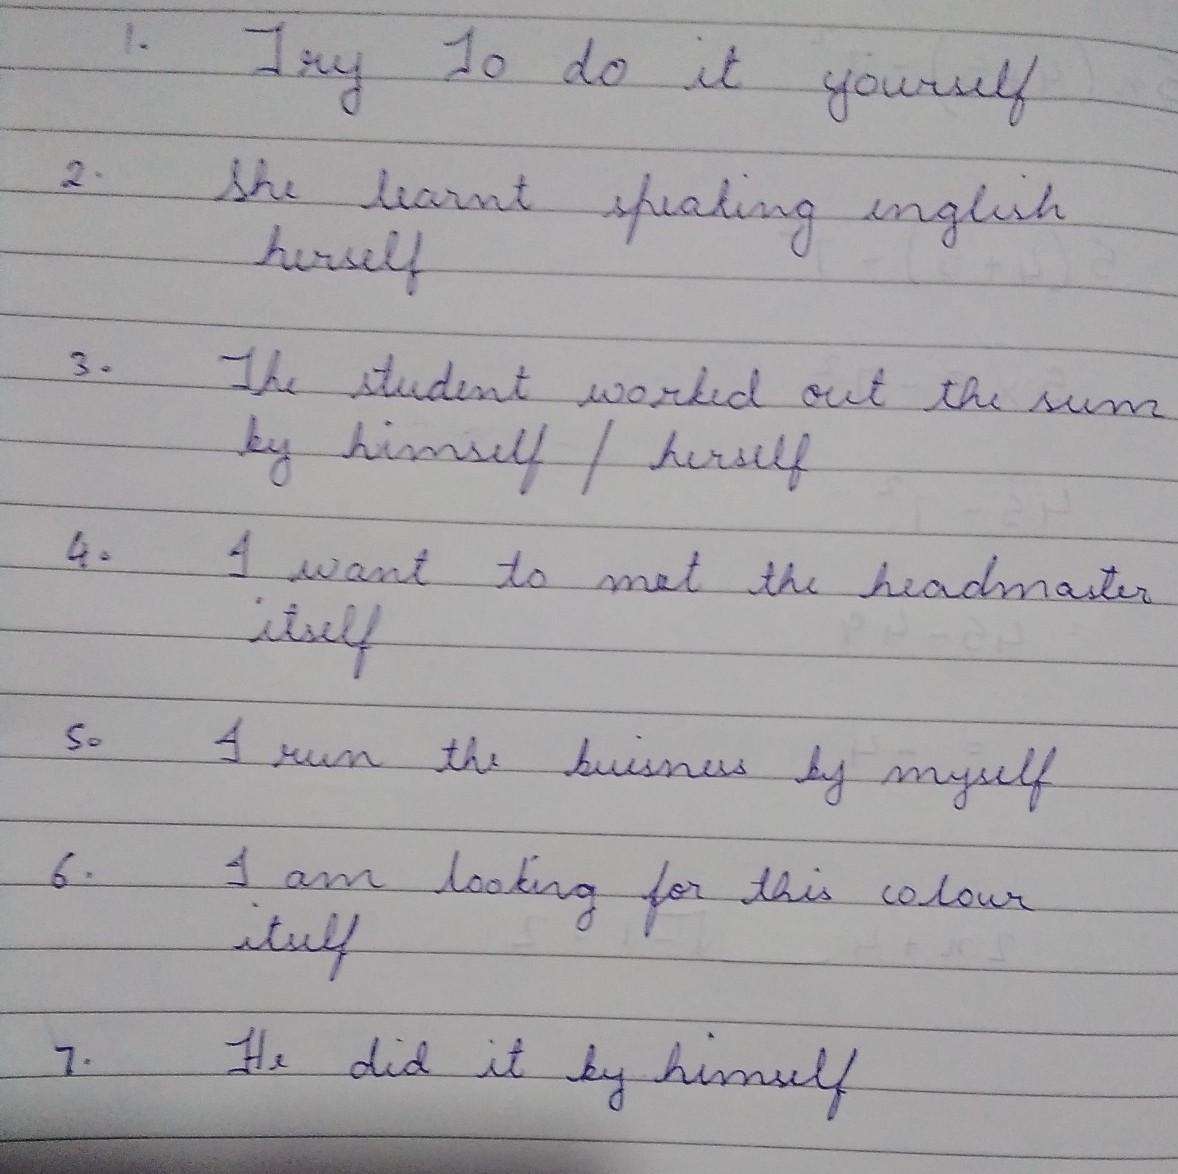 1. Try To do it yourself
2. She learnt speaking english
herself
3. The student worked out the sum
by himself / herself
4. I want to met the headmaster
itself
5. I run the buisness by myself
6. I am looking for this colour
itself
7. He did it by himself